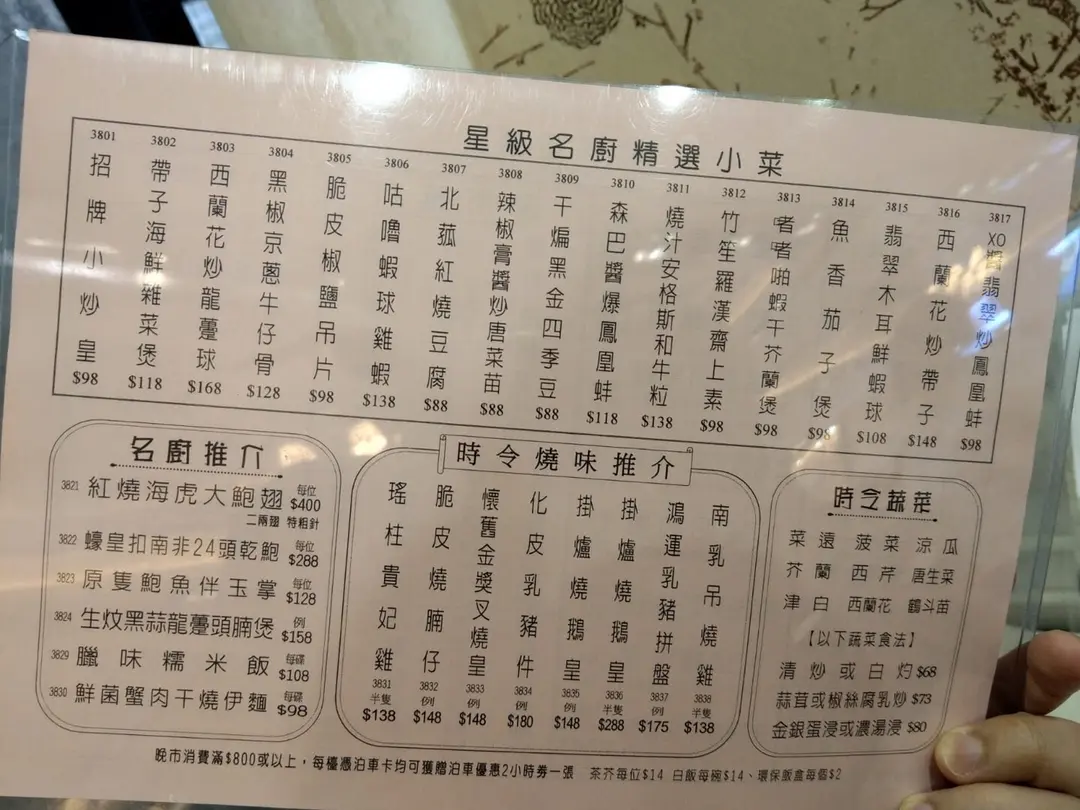 星級名廚精選小菜
3801 招牌小炒皇 $98
3802 帶子海鮮雜菜煲 $118
3803 西蘭花炒龍躉球 $168
3804 黑椒京蔥牛仔骨 $128
3805 脆皮椒鹽吊片 $98
3806 咕嚕蝦球雞蝦 $138
3807 北菰紅燒豆腐 $88
3808 辣椒膏醬炒唐菜苗 $88
3809 干煸黑金四季豆 $88
3810 森巴醬爆鳳凰蚌 $118
3811 燒汁安格斯和牛粒 $138
3812 竹笙羅漢齋上素 $98
3813 啫啫啪蝦干芥蘭煲 $98
3814 魚香茄子煲 $98
3815 翡翠木耳鮮蝦球 $108
3816 西蘭花炒帶子 $148
3817 XO醬翡翠炒鳳凰蚌 $98
名廚推介
3821 紅燒海虎大鮑翅 每位 $400
二兩翅 特粗針
3822 蠔皇扣南非24頭乾鮑 每位 $288
3823 原隻鮑魚伴玉掌 每位 $128
3824 生炆黑蒜龍躉頭腩煲 例 $158
3829 臘味糯米飯 每碟 $108
3830 鮮菌蟹肉干燒伊麵 每碟 $98
時令燒味推介
瑤柱貴妃雞 3831 半隻 $138
脆皮燒腩仔 3832 例 $148
懷舊金獎叉燒皇 3833 例 $148
化皮乳豬件 3834 例 $180
掛爐燒鵝皇 3835 例 $148
掛爐燒鵝皇 3836 半隻 $288
鴻運乳豬拼盤 3837 例 $175
南乳吊燒雞 3838 半隻 $138
時令蔬菜
菜遠 菠菜 涼瓜
芥蘭 西芹 唐生菜
津白 西蘭花 鶴斗苗
【以下蔬菜食法】
清炒或白灼 $68
蒜茸或椒絲腐乳炒 $73
金銀蛋浸或濃湯浸 $80
晚市消費滿$800或以上，每檯憑泊車卡均可獲贈泊車優惠2小時券一張 茶芥每位$14 白飯每碗$14、環保飯盒每個$2